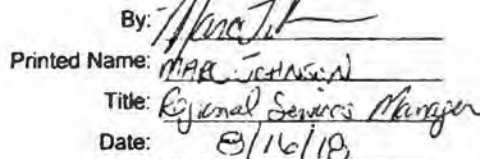 By:
Printed Name: MARC JOHNSEN
Title: Regional Services Manager
Date: 8/16/18